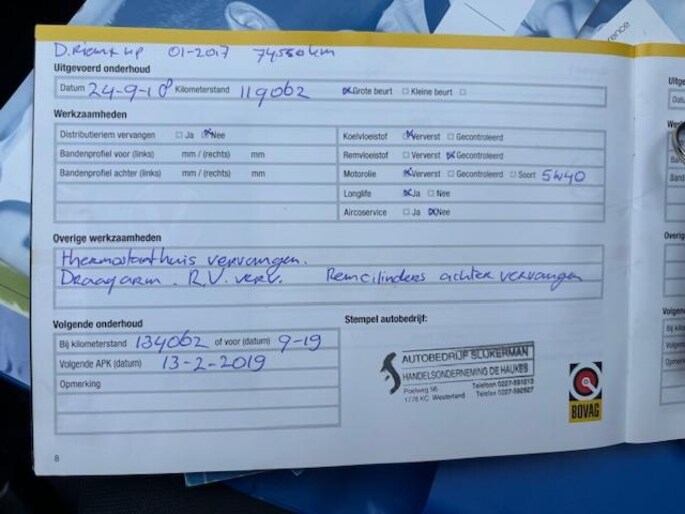 rence
D.Riem + WP 01-2017 74550km
Uitgevoerd onderhoud
Datum 24-9-18 Kilometerstand 119062 Grote beurt Kleine beurt
Werkzaamheden
Distributieriem vervangen Ja Nee
Bandenprofiel voor (links) mm / (rechts) mm
Bandenprofiel achter (links) mm / (rechts) mm
Koelvloeistof Ververst Gecontroleerd
Remvloeistof Ververst Gecontroleerd
Motorolie Ververst Gecontroleerd Soort 5W40
Longlife Ja Nee
Aircoservice Ja Nee
Overige werkzaamheden
thermostaathuis vervangen.
Draagarm. R.V. verv. Remcilinders achter vervangen
Volgende onderhoud
Bij kilometerstand 134062 of voor (datum) 9-19
Volgende APK (datum) 13-2-2019
Opmerking
Stempel autobedrijf:
AUTOBEDRIJF SLIJKERMAN
HANDELSONDERNEMING DE HAUKES
1778 KC Westerland
Telefoon
Telefax
BOVAG
8
Uitge
Datu
Werk
Band
Band
Overig
Volgende
Bij kilo
Volgende
Opmerk